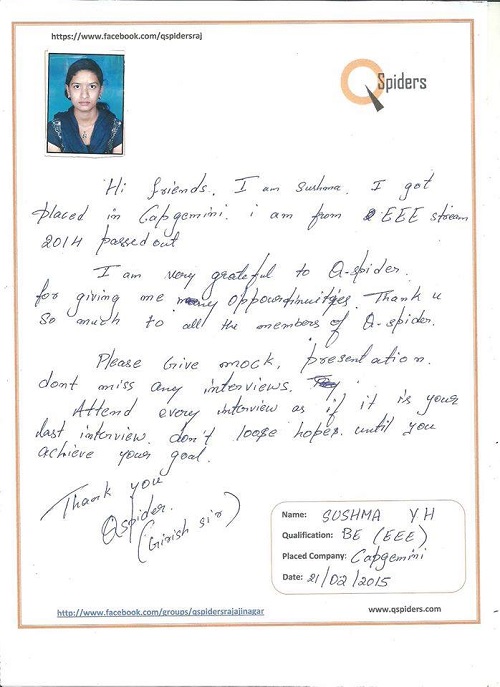 https://www.facebook.com/qspidersraj
QSpiders
Hi friends. I am Sushma. I got
placed in Capgemini. i am from EEE stream
2014 passed out
I am very grateful to Q-spider.
for giving me oppourtinuitges. Thank u
so much to all the members of Q-spider.
Please Give mock, presentation.
dont miss any interviews.
Attend every interview as if it is your
last interview. don't loose hopes. until you
achieve your goal.
Thank you
Qspider.
(Girish sir)
Name: SUSHMA Y H
Qualification: BE (EEE)
Placed Company: Capgemini
Date: 21/02/2015
http://www.facebook.com/groups/qspidersrajajinagar
www.qspiders.com